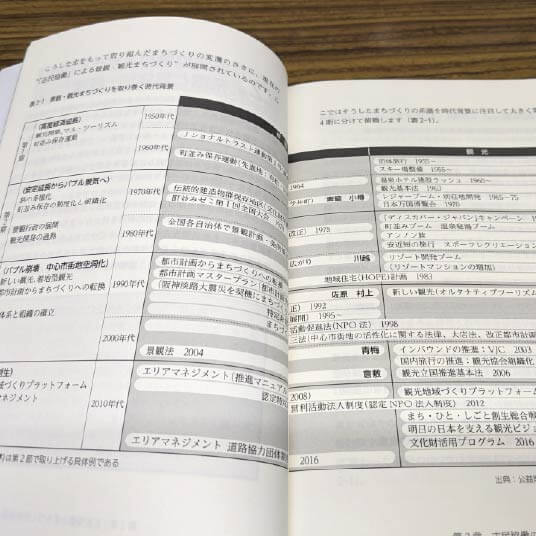 こうした志をもって取り組んだまちづくりの変遷のさきに、現在の
“市民協働”による景観・観光まちづくり”が展開されているのです。こ
表2-1 景観・観光まちづくりを取り巻く時代背景
（高度経済成長）
観光開発、マス・ツーリズム
町並み保存運動
1950年代
1960年代
ナショナルトラスト運動
町並み保存運動（先進地：京都
（安定成長からバブル景気へ）
旅の多様化
町並み保存の制度化と組織化
1970年代
伝統的建造物群保存地区
町並みゼミ第1回全国大会
景観行政の展開
観光開発の過熱
1980年代
全国各自治体で景観計画・条例
（バブル崩壊　中心市街地空洞化）
新しい観光、着地型観光
都市計画からまちづくりへの転換
体系と組織の確立
1990年代
都市計画からまちづくりへの転換
都市計画マスタープラン（都市計画
（阪神淡路大震災を契機にまち
特定非
まちづ
2000年代
景観法　2004
づくりプラットフォーム
マネジメント
2010年代
エリアマネジメント（推進マニュアル
認定特定
エリアマネジメント　道路協力団体制
は第2部で取り上げる具体例である
こではそうしたまちづくりの系譜を時代背景に注目して大きく
4期に分けて俯瞰します（表2-1）。
観　光
団体旅行　1955～
スキー場整備　1955～
1964
温泉ホテル建設ラッシュ　1960～
観光基本法　1963
妻籠　小樽
レジャーブーム・別荘地開発　1965～75
日本万国博覧会　1970
改正）1975
（ディスカバー・ジャパン）キャンペーン
町並みブーム　温泉秘湯ブーム
アンノン族
安近短の旅行　スポーツレクリエーション
広がり　川越
リゾート開発ブーム
（リゾートマンションの増加）
地域住宅（HOPE）計画　1983
佐原　村上
新しい観光（オルタナティブツーリズム
正）1992
展開）1995～
活動促進法（NPO法）1998
三法（中心市街地の活性化に関する法律、大店法、改正都市計画
青梅
インバウンドの推進：VJC　2003
国内旅行の推進：観光協会組織化
倉敷
観光立国推進基本法　2006
2008）
観光地域づくりプラットフォーム
営利活動法人制度（認定NPO法人制度）　2012
まち・ひと・しごと創生総合戦
明日の日本を支える観光ビジョ
2016
文化財活用プログラム　2016
出典：公益